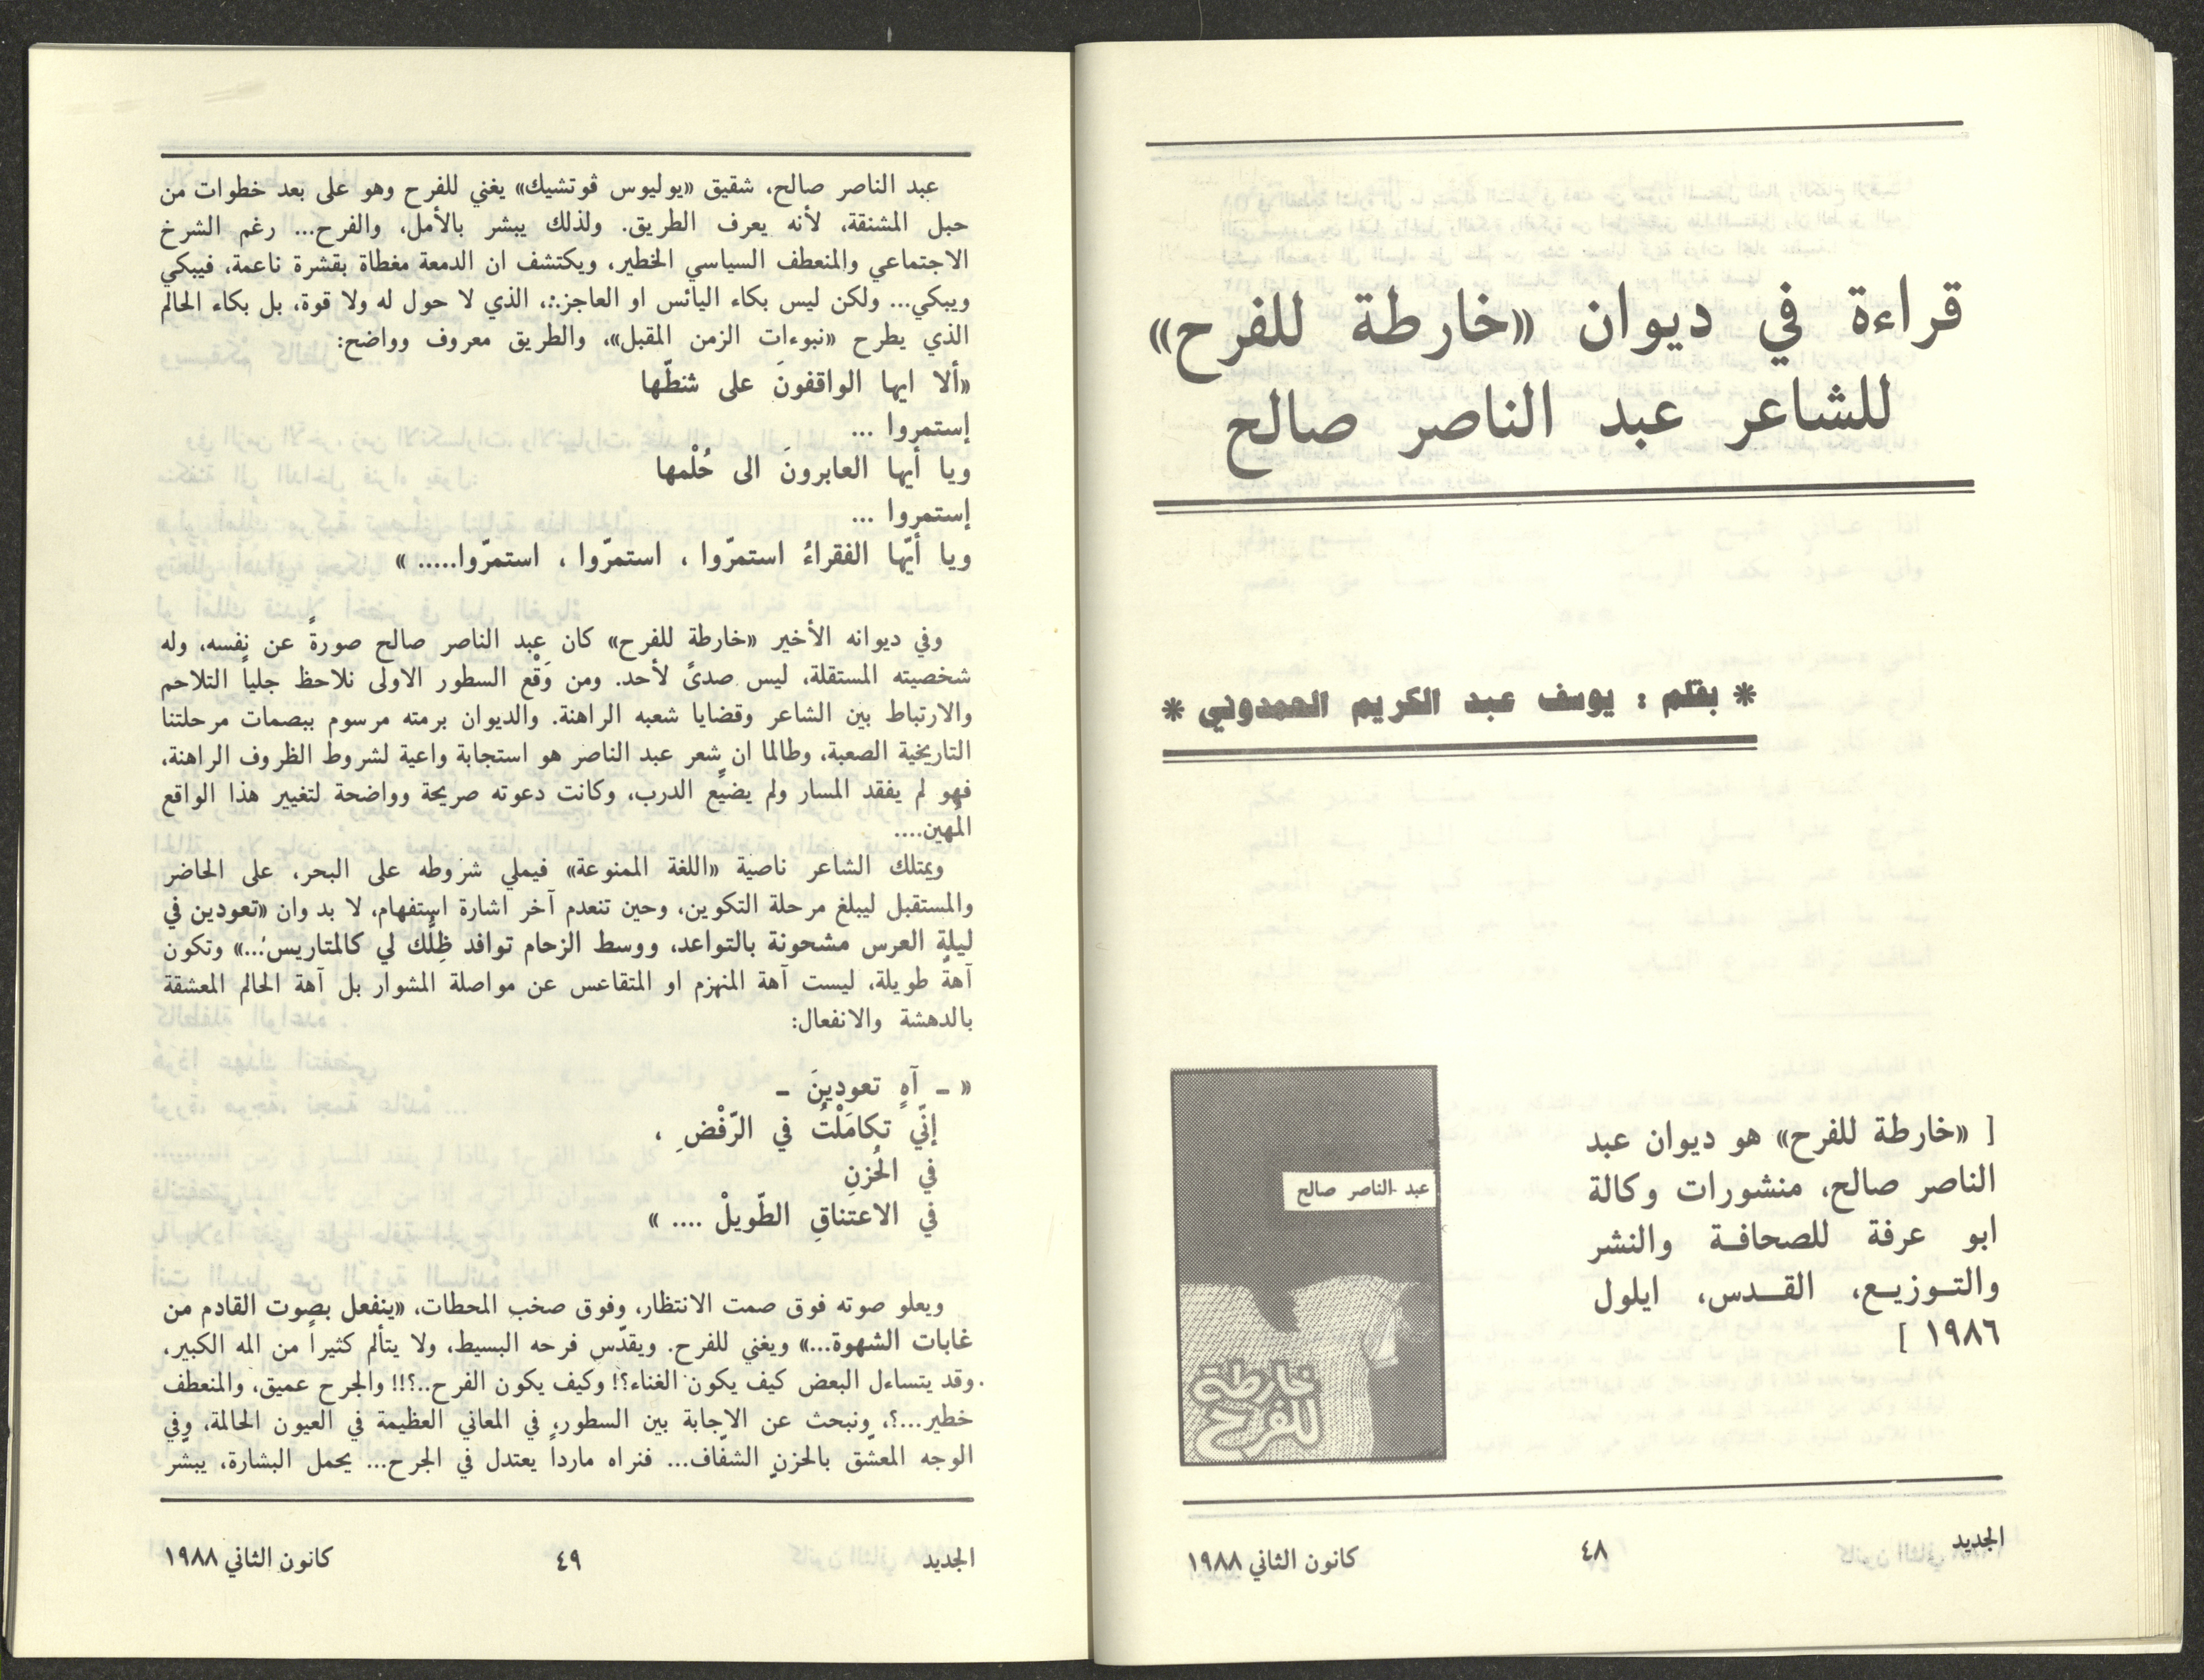 قراءة في ديوان «خارطة للفرح»
للشاعر عبد الناصر صالح
* بقلم : يوسف عبد الكريم الحمدوني *
[ «خارطة للفرح» هو ديوان عبد
الناصر صالح، منشورات وكالة
ابو عرفة للصحافة والنشر
والتوزيع، القدس، ايلول
١٩٨٦ ]
عبد الناصر صالح
خارطة
للفرح
الجديد
٤٨
كانون الثاني ١٩٨٨
عبد الناصر صالح، شقيق «يوليوس ڤوتشيك» يغني للفرح وهو على بعد خطوات من
حبل المشنقة، لأنه يعرف الطريق. ولذلك يبشر بالأمل، والفرح... رغم الشرخ
الاجتماعي والمنعطف السياسي الخطير، ويكتشف ان الدمعة مغطاة بقشرة ناعمة، فيبكي
ويبكي... ولكن ليس بكاء اليائس او العاجز.:، الذي لا حول له ولا قوة، بل بكاء الحالم
الذي يطرح «نبوءات الزمن المقبل»، والطريق معروف وواضح:
«ألا ايها الواقفونَ على شنطّها
إستمروا ...
ويا أيها العابرونَ الى حُلْمها
إستمروا ...
ويا أيّها الفقراءُ استمرّوا ، استمرّوا ، استمرّوا..... »
وفي ديوانه الأخير «خارطة للفرح» كان عبد الناصر صالح صورةً عن نفسه، وله
شخصيته المستقلة، ليس صدىً لأحد. ومن وَقْع السطور الاولى نلاحظ جلياً التلاحم
والارتباط بين الشاعر وقضايا شعبه الراهنة. والديوان برمته مرسوم ببصمات مرحلتنا
التاريخية الصعبة، وطالما ان شعر عبد الناصر هو استجابة واعية لشروط الظروف الراهنة،
فهو لم يفقد المسار ولم يضيّع الدرب، وكانت دعوته صريحة وواضحة لتغيير هذا الواقع
المُهين....
ويمتلك الشاعر ناصية «اللغة الممنوعة» فيملي شروطه على البحر، على الحاضر
والمستقبل ليبلغ مرحلة التكوين، وحين تنعدم آخر اشارة استفهام، لا بد وان «تعودين في
ليلة العرس مشحونة بالتواعد، ووسط الزحام توافد ظِلُّك لي كالمتاريس:...» وتكون
آهةً طويلة، ليست آهة المنهزم او المتقاعس عن مواصلة المشوار بل آهة الحالم المعشقة
بالدهشة والانفعال:
« - آهٍ تعودينَ -
إنّي تكامَلْتُ في الرّفْضِ ،
في الحُزنِ
في الاعتناقِ الطّويلْ .... »
ويعلو صوته فوق صمت الانتظار، وفوق صخب المحطات، «ينفعل بصوت القادم من
غابات الشهوة...» ويغني للفرح. ويقدّس فرحه البسيط، ولا يتألم كثيراً من المه الكبير،
وقد يتساءل البعض كيف يكون الغناء؟! وكيف يكون الفرح..؟!! والجرح عميق، والمنعطف
خطير...؟، ونبحث عن الاجابة بين السطور، في المعاني العظيمة في العيون الحالمة، وفي
الوجه المعشّق بالحزنِ الشفّاف... فنراه مارداً يعتدل في الجرح... يحمل البشارة، يبشّر
الجديد
٤٩
كانون الثاني ١٩٨٨